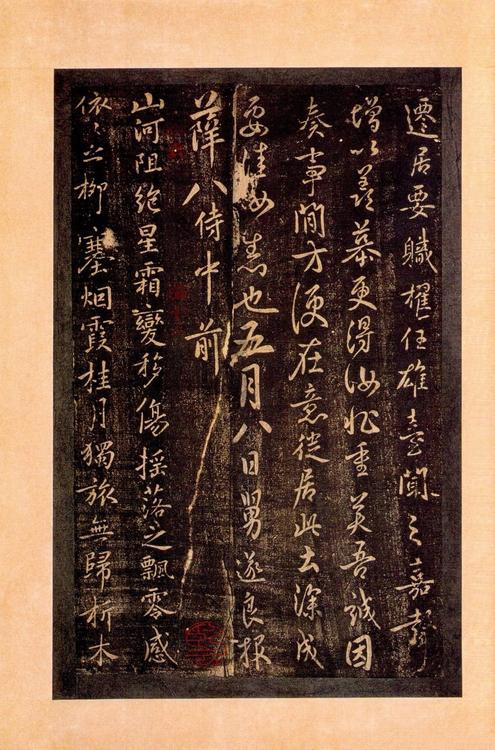 遷居要職櫂任雄臺聞之嘉聲
增以羨慕更得汝非重美吾誠因
奏事閒方便在意從居此出深成
要情汝悉也五月八日舅遂良報
薛八侍中前
山河阻絶星霜變移傷搖落之飄零感
依〻之柳塞烟霞桂月獨旅無歸折木